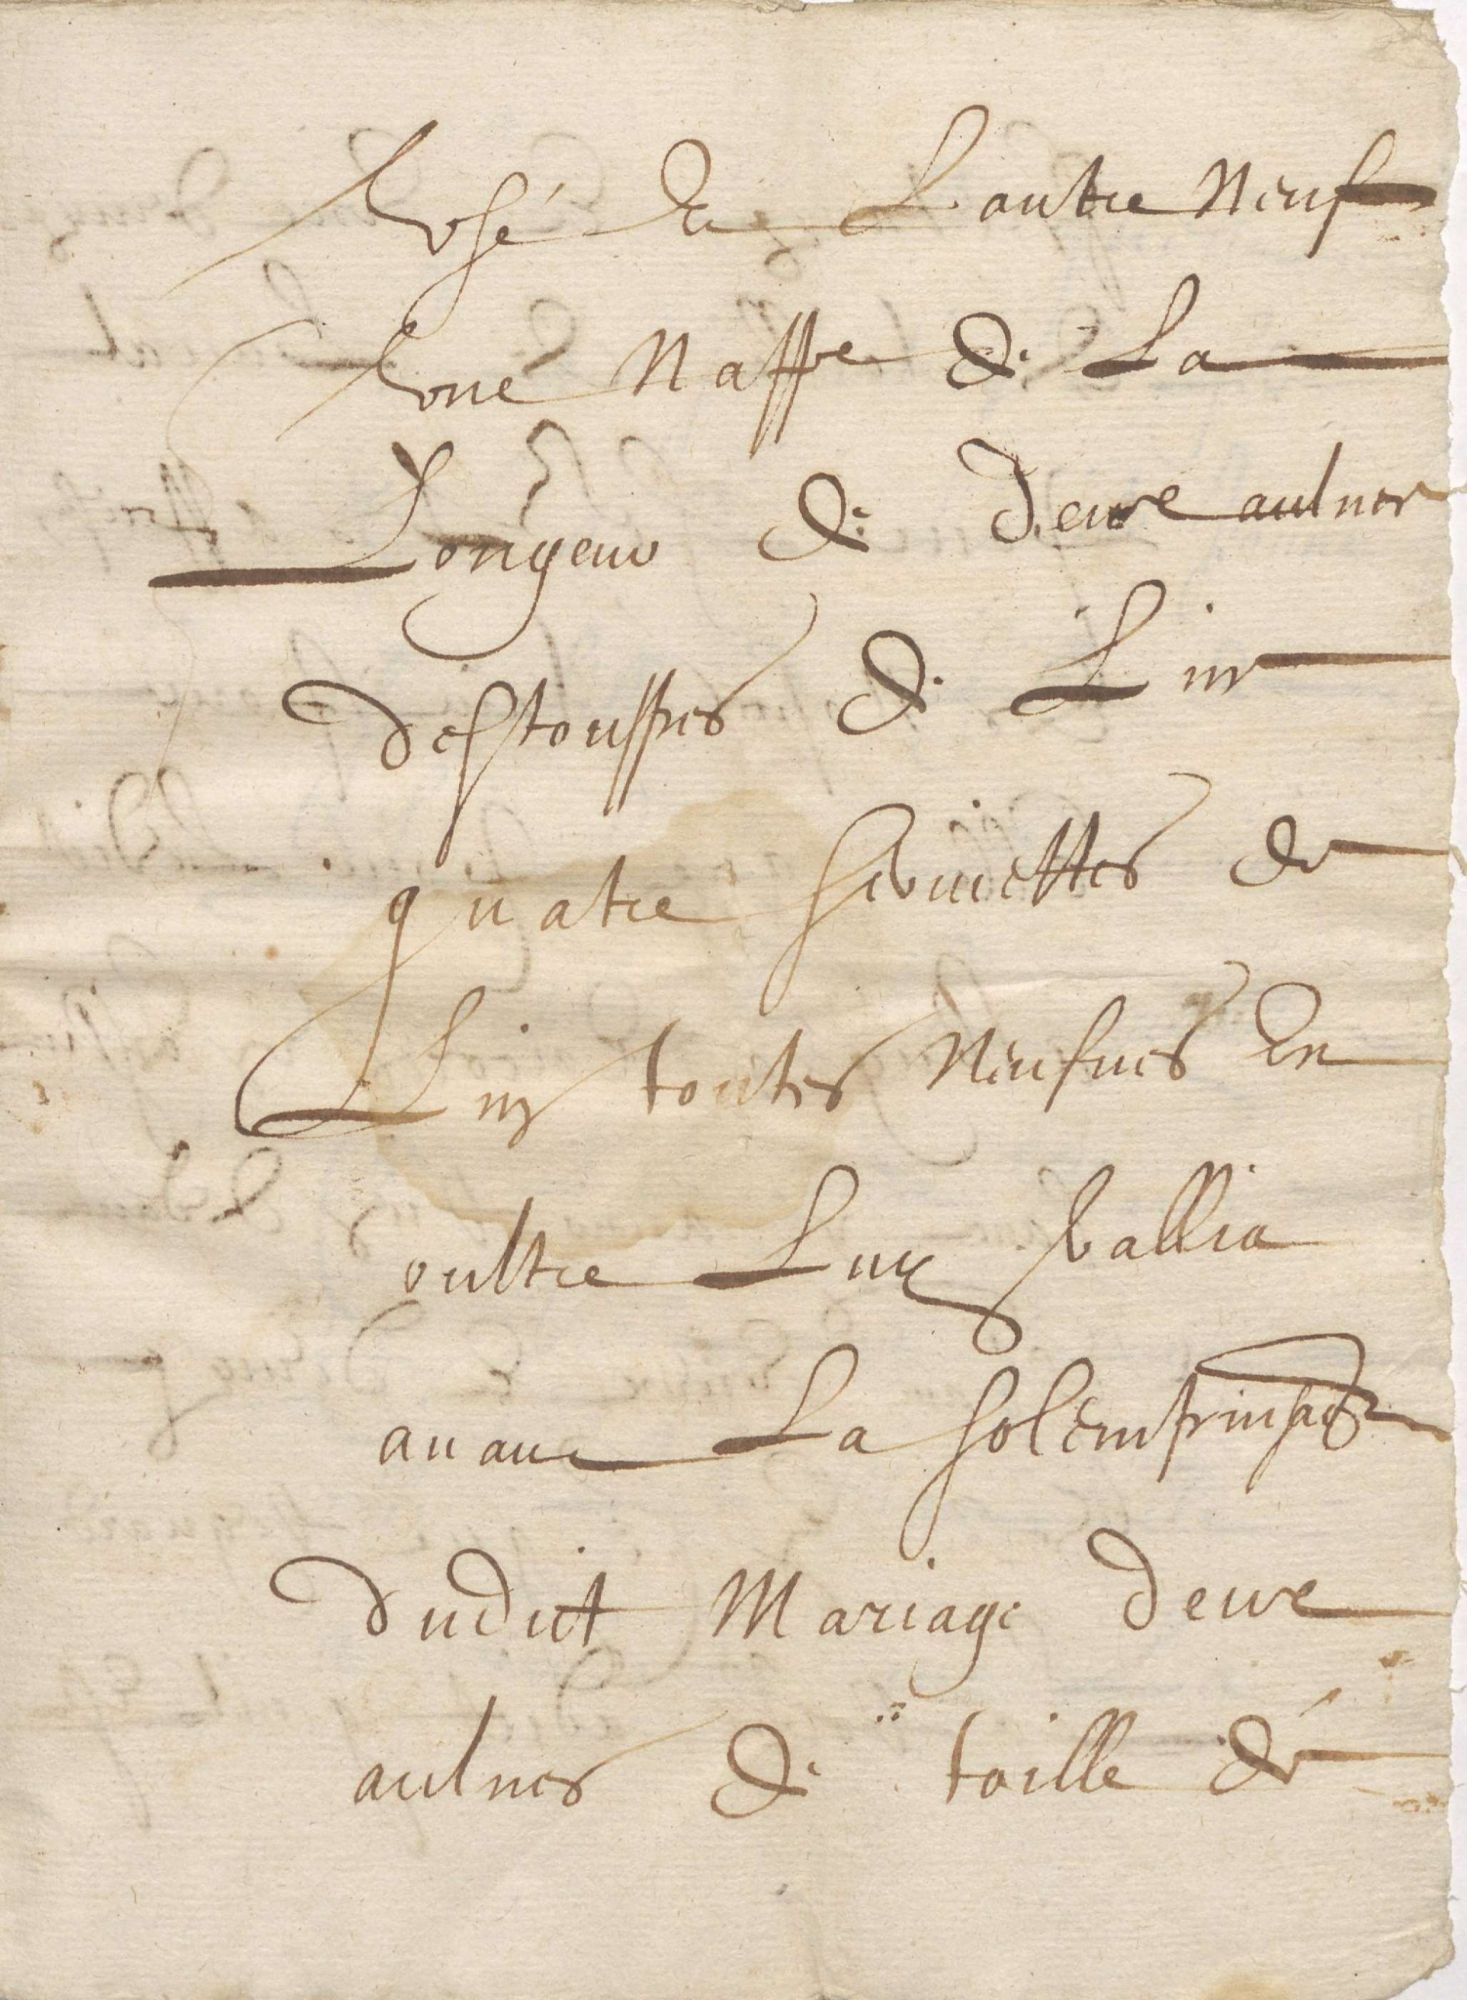 vsé Et L autre Neuf
vne Nappe de La
Longeur de deux aulnes
destouppes de Lin
quatre seruiettes de
Lin toutes Neufues En
oultre Luy ballia
auant La solempnisaõn
dudict Mariage deux
aulnes de toille de